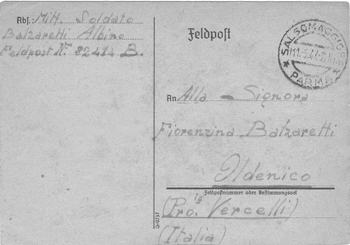 Abs. Mitt. Soldato
Balzaretti Albino
Feldpost Nr 82414 B.
Feldpost
SALSOMAGGIORE
PARMA
An Alla Signora
Fiorenzina Balzaretti
Oldenico
Feldpostnummer oder Bestimmungsort
(Pro. Vercelli)
(Italia)